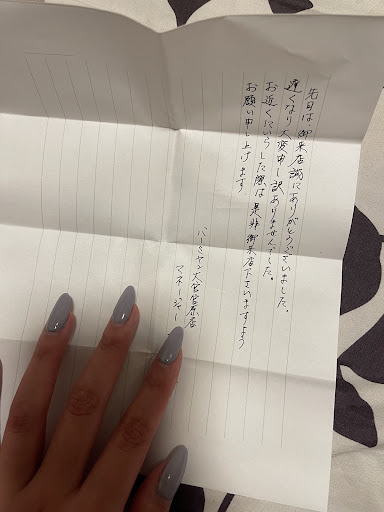 先日は御来店誠にありがとうございました。
遅くなり大変申し訳ありませんでした。
お近くにいらした際は是非御来店下さいますよう
お願い申し上げます
バーミヤン大宮宮原店
マネージャー